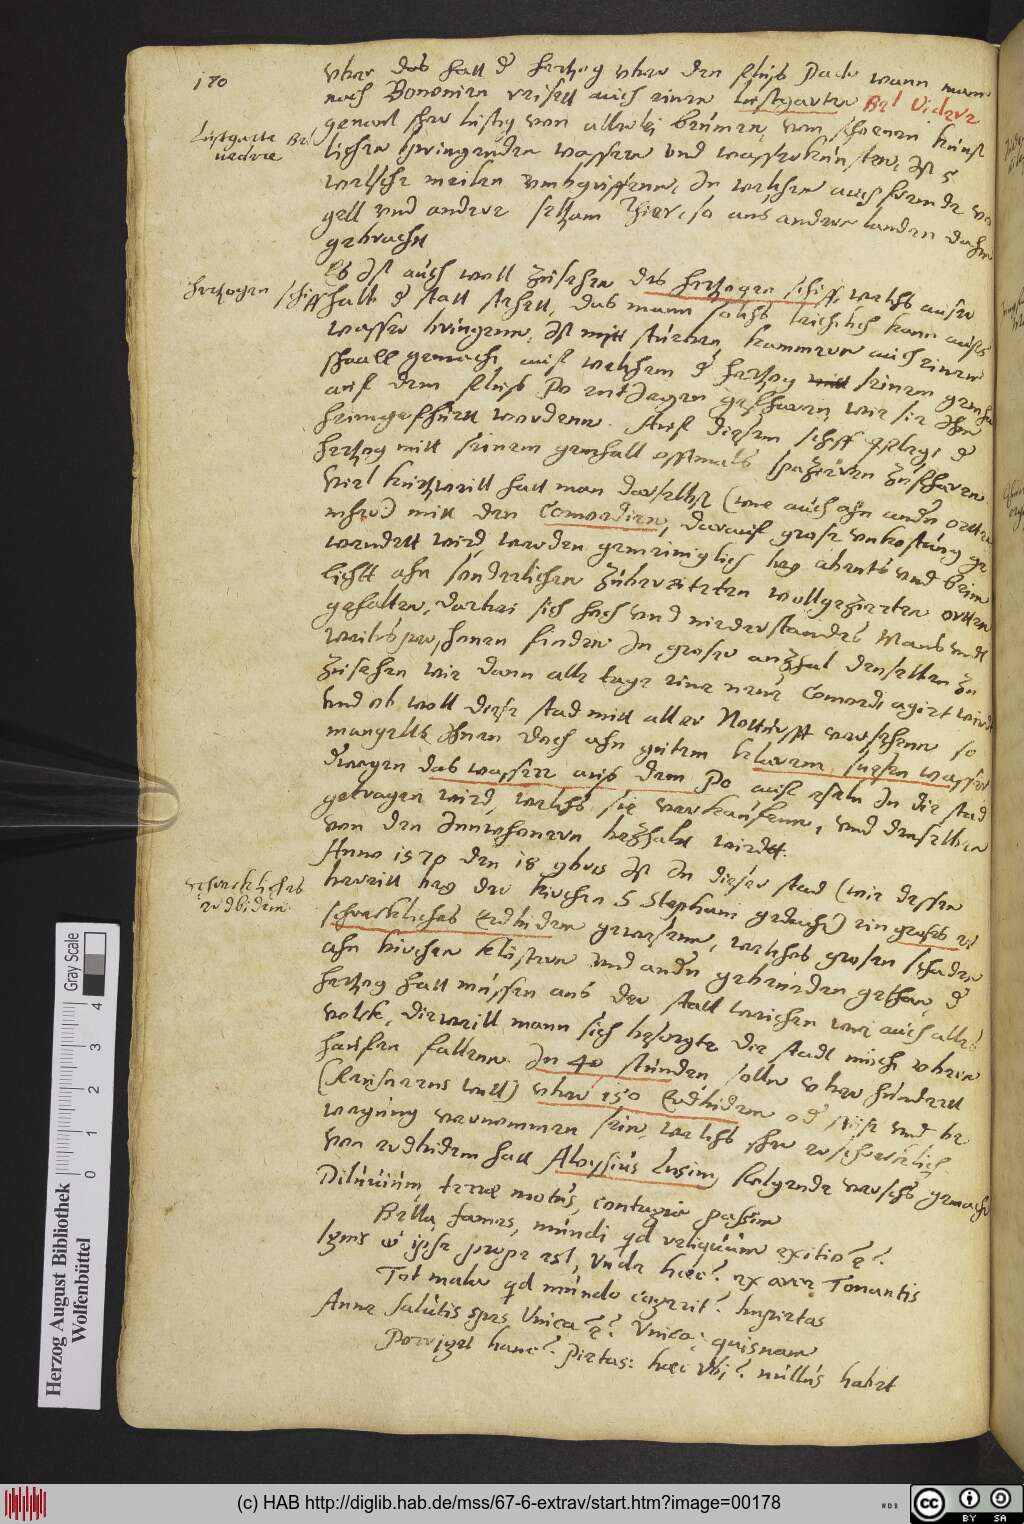 170
vber das hatt der Hertzog vber den fluß Padu wann mann
nach Bononien reisett auch einen Lustgarten Bel Videre
Lustgarte Bel
uedere
genant sehr lustig von allerlei beumen, vom schoenen kunst
lichen springenden wassern vnd wasserkunsten, Ist 5
welsche meilen vmbgriffenn, In welchen auch frembde vo
gell vnd andere seltzam thier, so aus andern landen dahin
gebracht
Es Ist auch woll zusehen des Hertzogen schiff, welchs ausser
Hertzogen schiff
halb der statt stehett, das mann solchs leichtlich kann aufs
wasser bringenn, Ist mitt stuben, kammern auch einem
staall gemacht, auf welchem der Hertzog seinem gemhal
auf dem fluß Po entdegen gefharen, wie sie Ihm
heimgefhürtt wordenn. Auf diesem schiff pflegt der
Hertzog mitt seinem gemhall offtmals spazieren zufharen
Viel kurtzweill hatt man daselbst (wie auch ahn andern orttern
mehr) mitt den Comoedien, darauf grose vnkostung ge
wendett wird, werden gemeiniglich beg abents vnd beim
liecht ahn sonderlichen zubereiteten wollgezierten ortten
gehalten, darbei sich hoch vnd nieder standes Mans vndt
weibs personen finden In groser anzhal denselben zu
zusehen wie dann alle tage eine neue Comoedi agirt wirdt
vnd ob woll diese stad mitt aller Notturfft versehenn so
mangelts Ihnen doch ahn gutem klarem suesen wasser
dwegen das wasserr aus dem Po auf eseln In die stad
getragen wird, welchs sie verkaufenn, vnd denselben
von den Innwohenern bezhalt wirdt.
Anno 1570 den 18 9bris Ist In dieser stad (wie dessen
schrecklichs
erdbidem
bereitt beg der kirchen S Stephani gedacht) ein groses er
schreckliches Erdbidem gewesenn, welches grosen schaden
ahn kirchen klöstern vnd andern gebeuden gethan, der
Hertzog hatt müssen aus der statt weichen wie auch alles
volck, dieweill mann sich besorgte die stadt möcht vberm
haufen fallenn. In 40 stunden sollen vber hundertt
vber 150 Erdbidem oder stöse vnd be
wegung vernommen sein, welchs sehr erschrecklich
von erdbidem hatt Aloysius Lusini folgende versch gemacht
Diluuium, terrae motus, contagia passim
Bella, fames, mundi qd reliquum exitio est?
Ignis et ipse prope est, Vnde haec? ex ore Tonantis
Tot mala qd mundo cogerit? Impietas
Anne salutis spes Vnica est? Vnica: quisnam
Porriget hanc? Pietas: haec Vbi? nullus habet
Gray Scale
0 1 2 3 4
Herzog August Bibliothek
Wolfenbüttel
(c) HAB http://diglib.hab.de/mss/67-6-extrav/start.htm?image=00178
WDB
cc BY SA